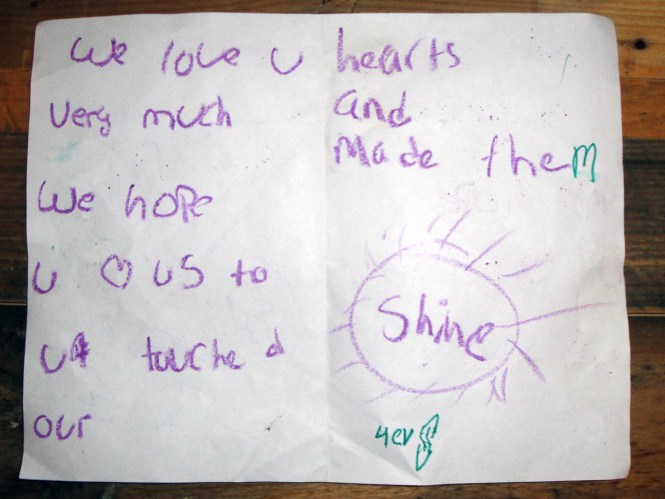 We love u
very much
We hope
u ♡ us to
u touched
our
hearts
and
made them
Shine
4ev